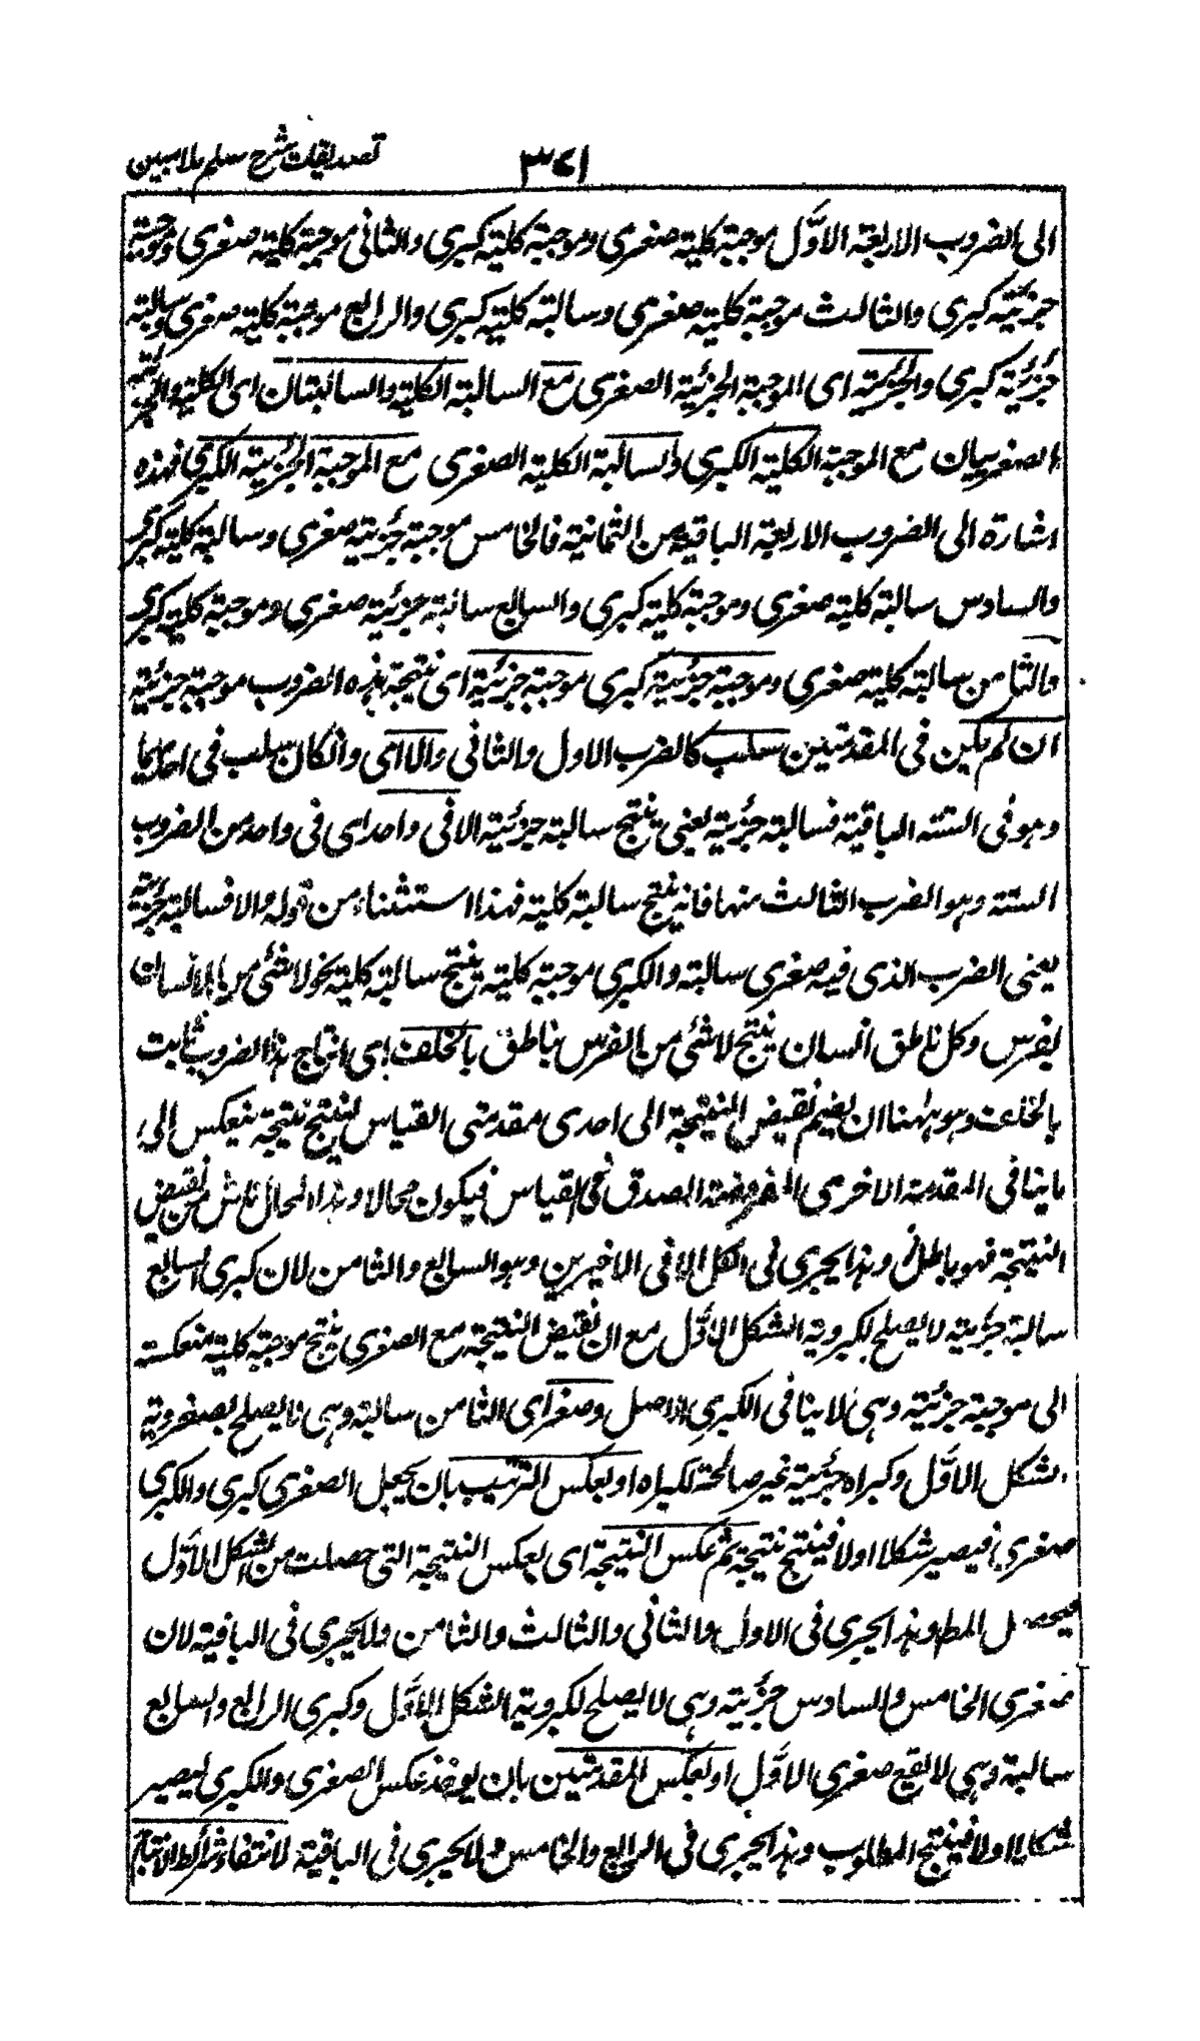 تصدیقات شرح سلم ملا مبین
۳۷۱
الی الضروب الاربعة الاوَّل موجبة کلیة صغری وموجبة کلیة کبری والثانی موجبة کلیة صغری وموجبة
جزئیة کبری والثالث موجبة کلیة صغری وسالبة کلیة کبری والرابع موجبة کلیة صغری وسالبة
جزئیة کبری والجزئیة ای الموجبة الجزئیة الصغری مع السالبة الکلیة والسالبتان ای الکلیة والجزئیة
الصغریان مع الموجبة الکلیة الکبری والسالبة الکلیة الصغری مع الموجبة الجزئیة الکبری فهذه
اشارة الی الضروب الاربعة الباقیة من الثمانیة فالخامس موجبة جزئیة صغری وسالبة کلیة کبری
والسادس سالبة کلیة صغری وموجبة کلیة کبری والسابع سالبة جزئیة صغری وموجبة کلیة کبری
والثامن سالبة کلیة صغری وموجبة جزئیة کبری موجبة جزئیة ای نتیجة هذه الضروب موجبة جزئیة
ان لم یکن فی المقدمتین سلب کالضرب الاول والثانی والا ای وانکان سلب فی احدیهما
وهو فی الستة الباقیة فسالبة جزئیة یعنی ینتج سالبة جزئیة الا فی واحد ای فی واحد من الضروب
الستة وهو الضرب الثالث منها فانه ینتج سالبة کلیة فهذا استثناء من قوله والا فسالبة جزئیة
یعنی الضرب الذی فیه صغری سالبة والکبری موجبة کلیة ینتج سالبة کلیة نحو لا شئ من الانسان
بفرس وکل ناطق انسان ینتج لا شئ من الفرس بناطق بالخلف ای انتاج هذا الضروب ثابت
بالخلف وهو ههنا ان یضم نقیض النتیجة الی احدی مقدمتی القیاس لینتج نتیجة ینعکس الی
ما ینافی المقدمة الاخری المفروضة الصدق فی القیاس فیکون محالا وهذا المحال ناش من نقیض
النتیجة فهو باطل وهذا یجری فی الکل الا فی الاخیرین وهو السابع والثامن لان کبری السابع
سالبة جزئیة لا یصلح لکبرویة الشکل الاوَّل مع ان نقیض النتیجة مع الصغری ینتج موجبة کلیة منعکسة
الی موجبة جزئیة وهی لا ینافی الکبری الاصل وصغرای الثامن سالبة وهی لا یصلح لصغرویة
الشکل الاوَّل وکبراه جزئیة غیر صالحة لکبراه او بعکس الترتیب بان یجعل الصغری کبری والکبری
صغری فیصیر شکلا اولا فینتج نتیجة ثم عکس النتیجة ای یعکس النتیجة التی حصلت من الشکل الاوَّل
فیحصل المط وهذا یجری فی الاول والثانی والثالث والثامن ولا یجری فی الباقیة لان
صغری الخامس والسادس جزئیة وهی لا یصلح لکبرویة الشکل الاوَّل وکبری الرابع والسابع
سالبة وهی لا یقع صغری الاوَّل او بعکس المقدمتین بان یوخذ عکس الصغری والکبری لیصیر
شکلا اولا فینتج المطلوب وهذا یجری فی الرابع والخامس ولا یجری فی الباقیة لانتفاء شرائط الانتاج